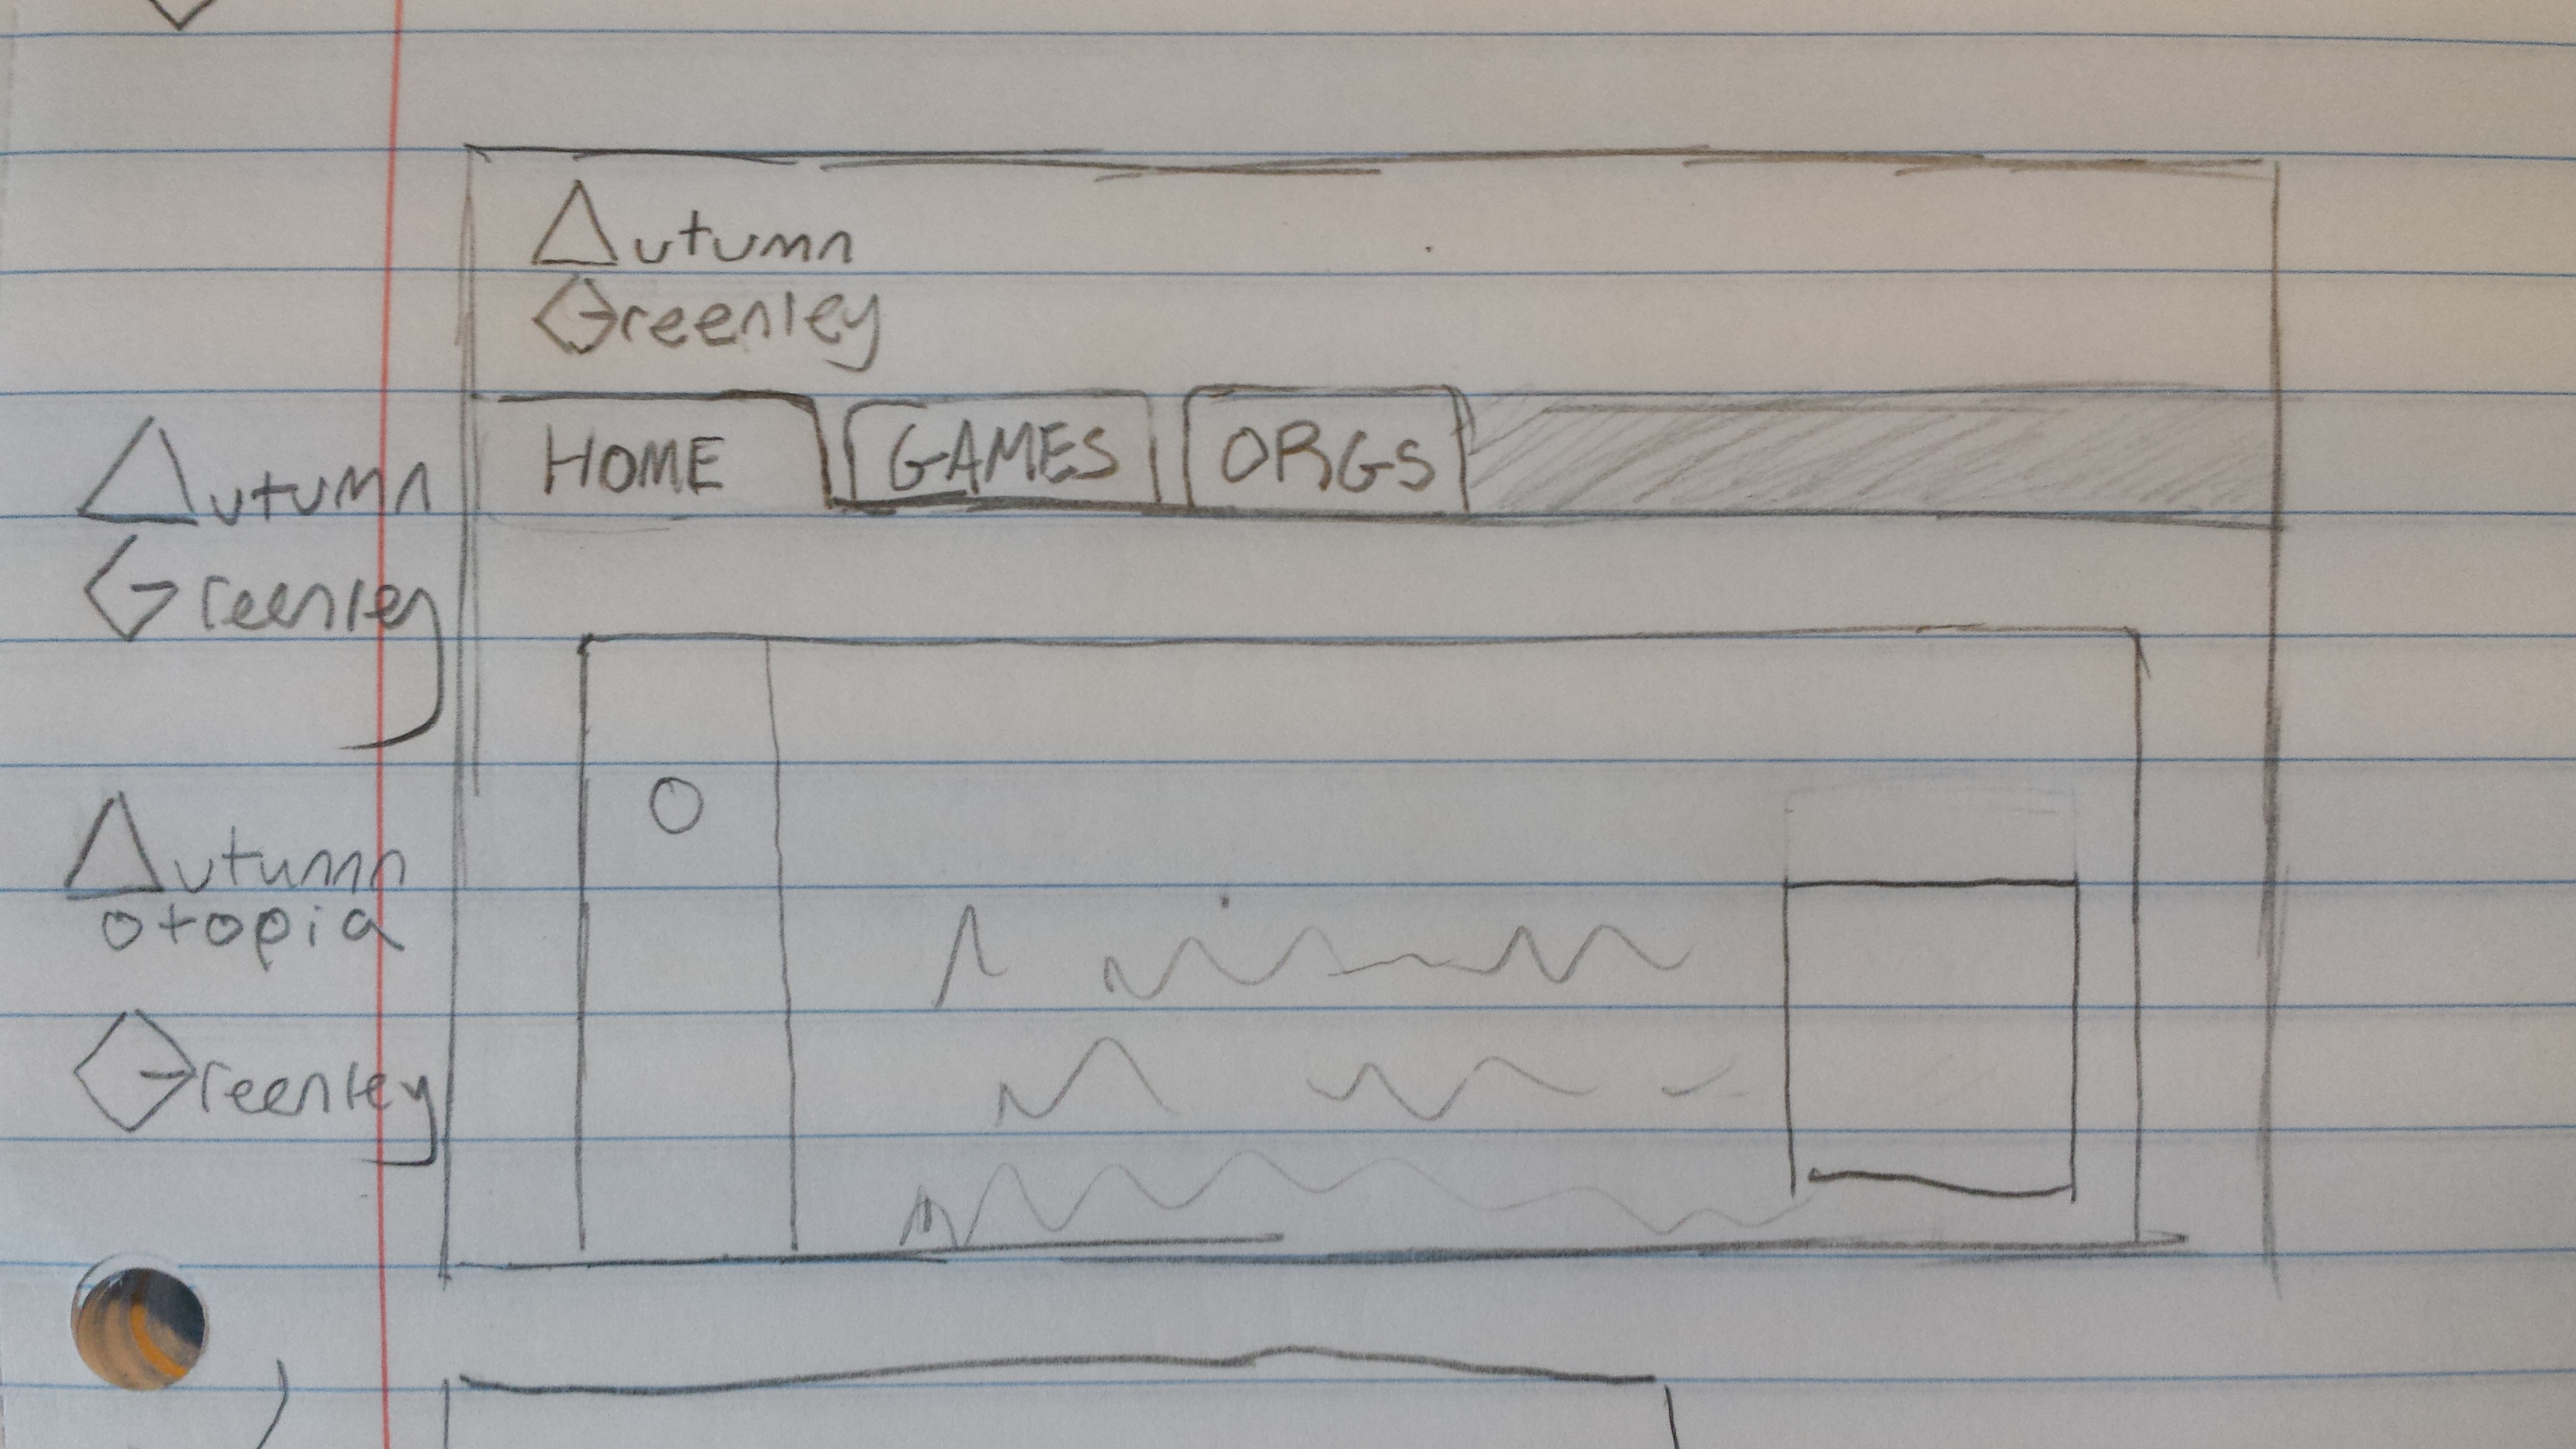 Autumn
Greenley
HOME GAMES ORGS
Autumn
Greenley
Autumn
otopia
Greenley